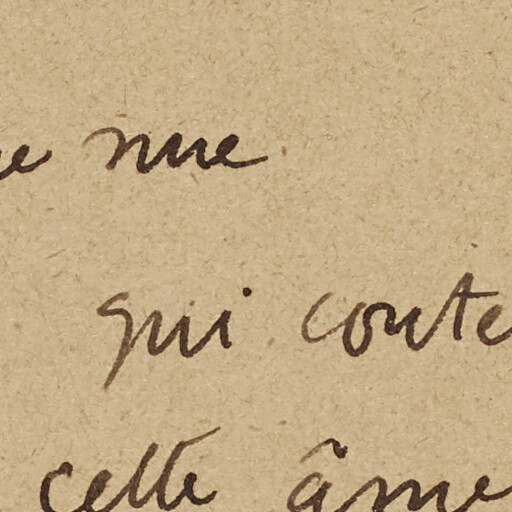 nue
qui coute
cette âme